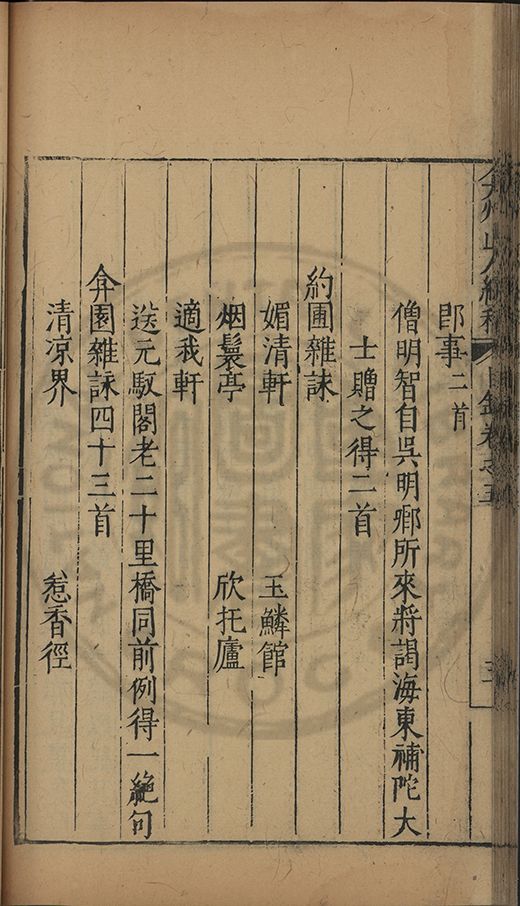 弇州山人續稿 目錄卷之五
即事二首
僧明智自吳明卿所來將謁海東補陀大
士贈之得二首
約圃雜詠
媚清軒 玉鱗館
烟鬟亭 欣托廬
適我軒
送元馭閣老二十里橋同前例得一絕句
弇園雜詠四十三首
清涼界 惹香徑